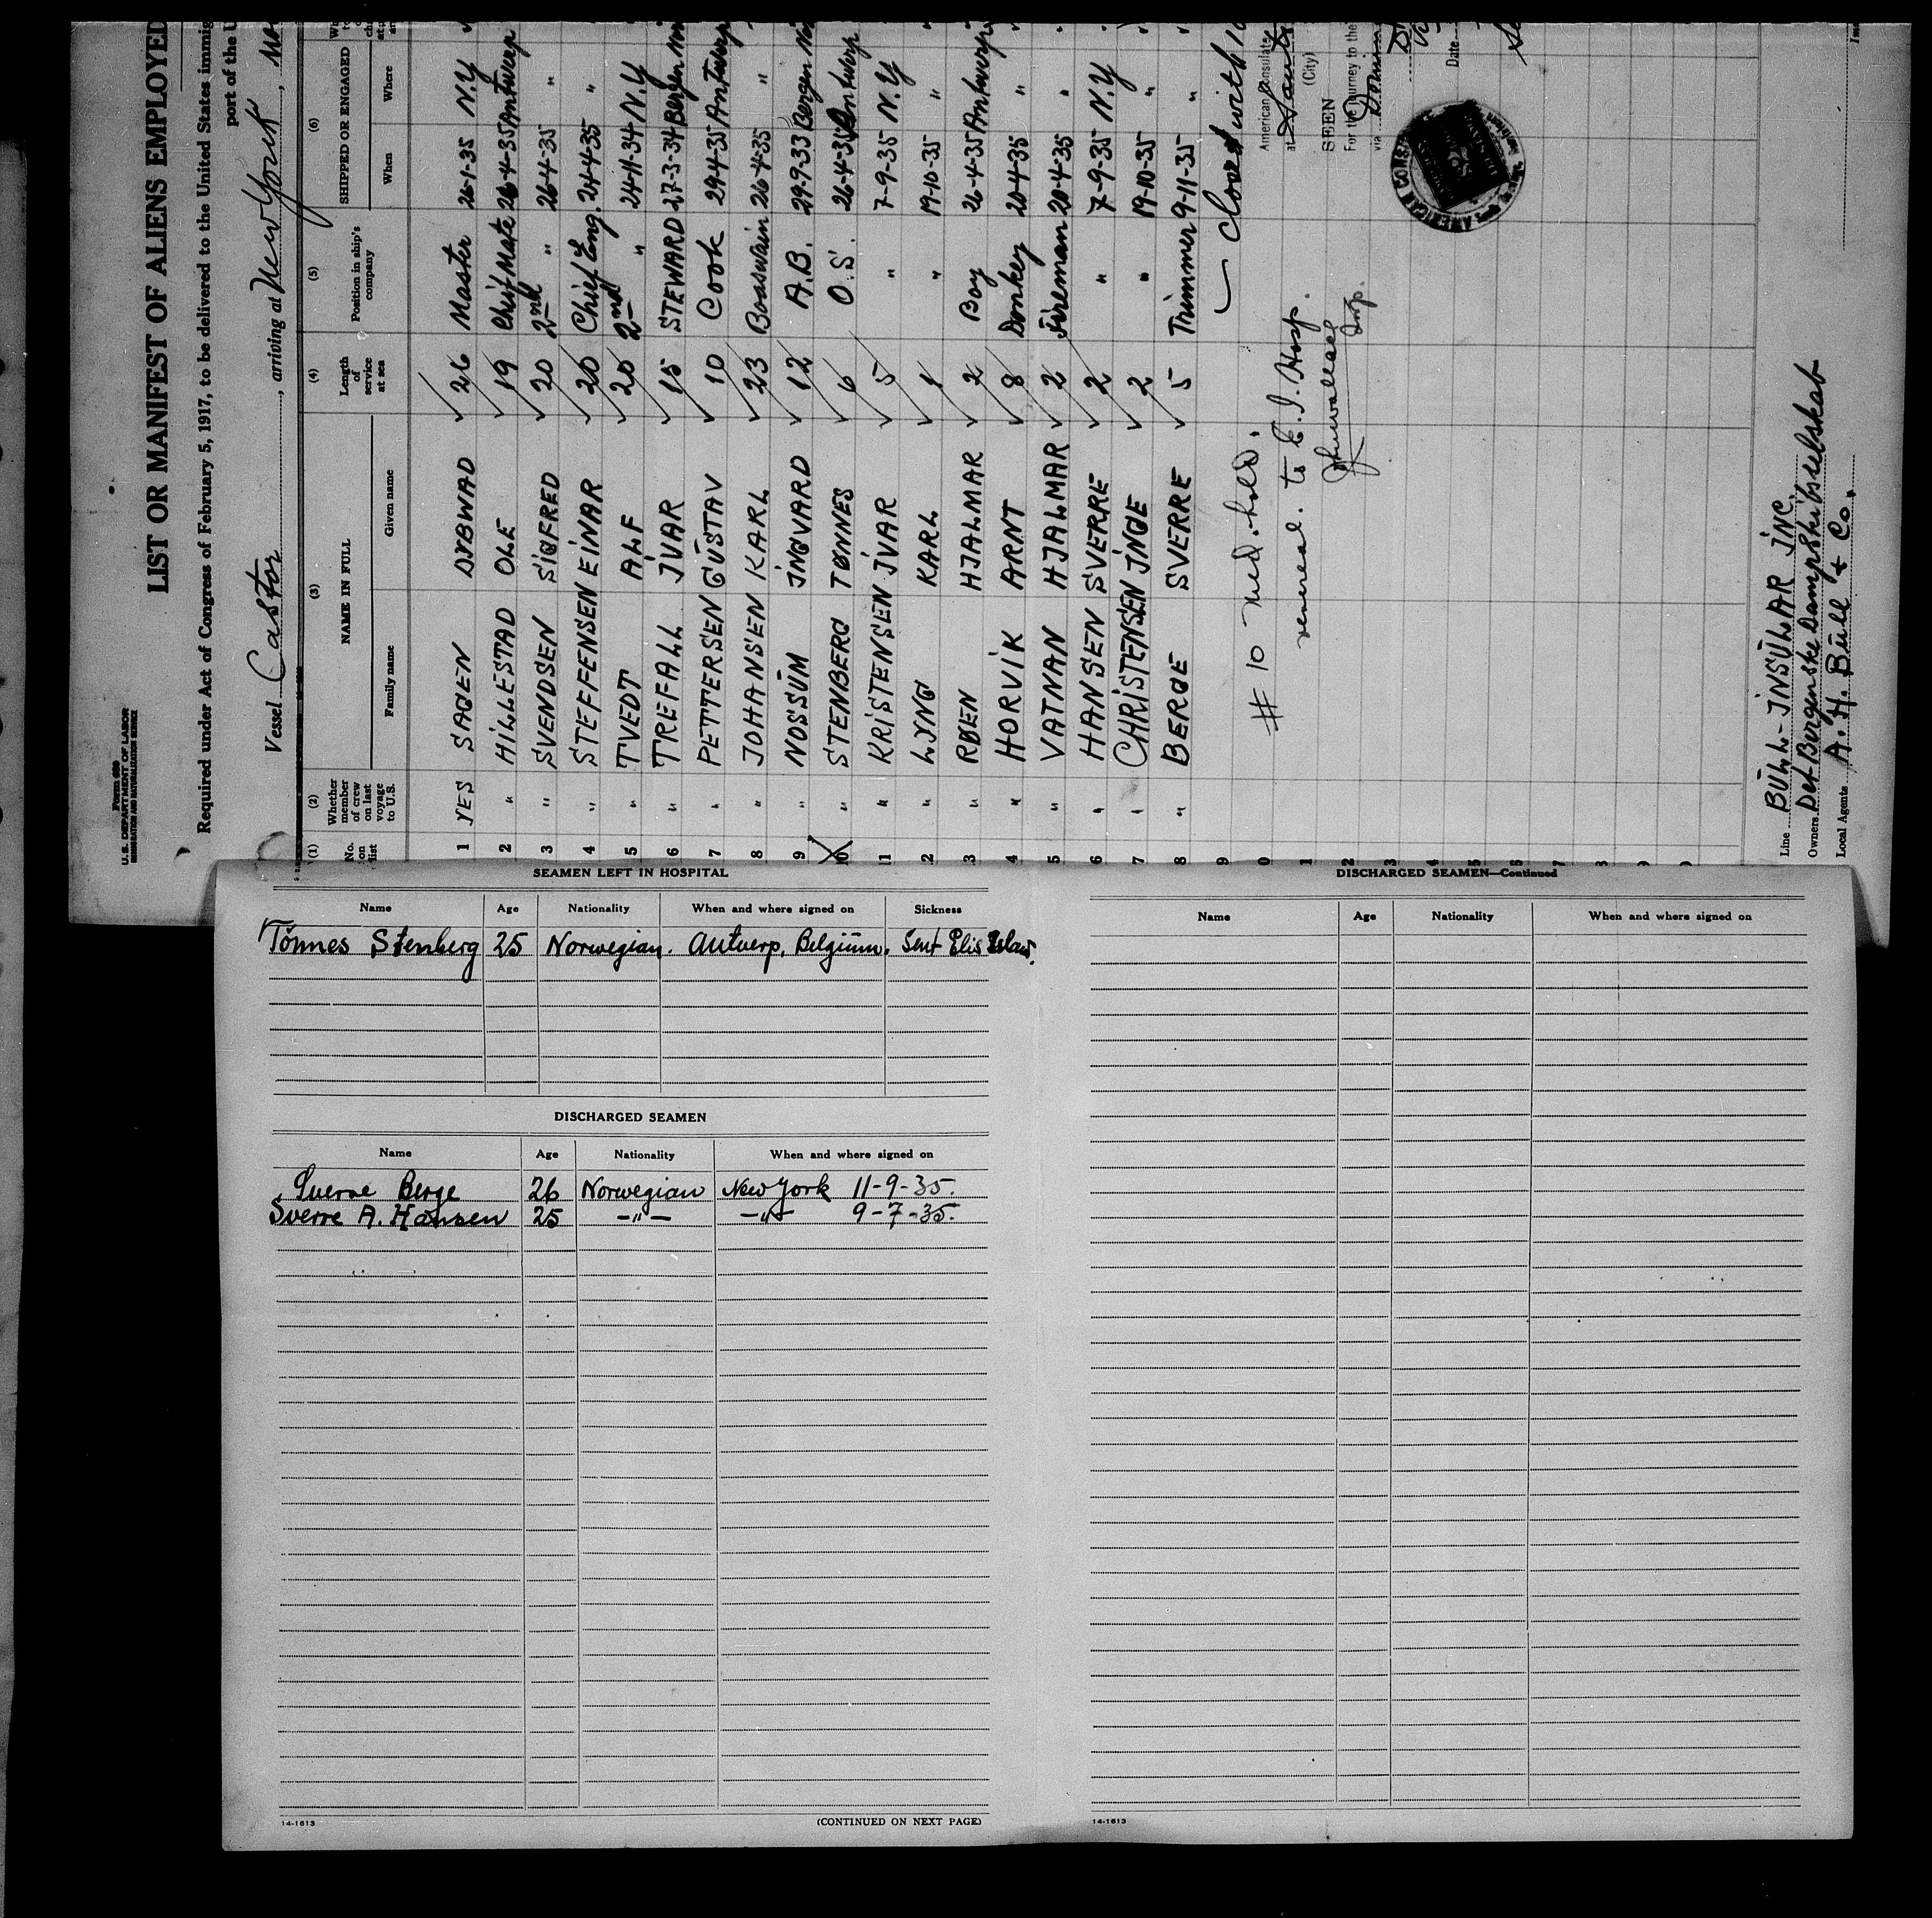 Form 680
U.S. DEPARTMENT OF LABOR
IMMIGRATION AND NATURALIZATION SERVICE
LIST OR MANIFEST OF ALIENS EMPLOYED
Required under Act of Congress of February 5, 1917, to be delivered to the United States immig
port of the U
Vessel Castor, arriving at New York,
(1) (2) (3) (4) (5) (6)
No. on list Whether member of crew on last voyage to U.S. NAME IN FULL Family name Given name Length of service at sea Position in ship's company SHIPPED OR ENGAGED When Where
1 YES SAGEN DYBWAD 26 Master 26-1-35 N.Y
2 " HILLESTAD OLE 19 Chief Mate 26-4-35 Antwerp
3 " SVENDSEN SIGFRED 20 2nd " 26-4-35 "
4 " STEFFENSEN EINAR 20 Chief Eng. 24-4-35 "
5 " TVEDT ALF 20 2nd " 24-11-34 N.Y
6 " TREFALL IVAR 15 STEWARD 27-3-34 Bergen
7 " PETTERSEN GÜSTAV 10 Cook 29-4-35 Antwerp
8 " JOHANSEN KARL 23 Boaswain 26-4-35 "
9 " NOSSÜM INGVARD 12 A.B. 29-9-33 Bergen
10 " STENBERG TØNNES 6 O.S. 26-4-35 Antwerp
11 " KRISTENSEN IVAR 5 " 7-9-35 N.Y
2 " LYNG KARL 1 " 19-10-35 "
3 " RØEN HJALMAR 2 Boy 26-4-35 Antwerp
4 " HORVIK ARNT 8 Donkey 20-4-35 "
5 " VATNAN HJALMAR 2 Fireman 20-4-35 "
6 " HANSEN SVERRE 2 " 7-9-35 N.Y
7 " CHRISTENSEN INGE 2 " 19-10-35 "
8 " BERGE SVERRE 5 Trimmer 9-11-35 "
9
0
1
2
3
4
5
6
7
8
9
Closed with
# 10 med. hold.
venereal. to E.I. Hosp.
Insp.
American Consulate
at
(City)
SEEN
For the journey to the
via
Date
AMERICAN CONS
Line BÜLL-INSÜLAR INC.
Owners Det Bergenske Dampskibsselskab
Local Agents A. H. Büll & Co.
SEAMEN LEFT IN HOSPITAL
Name Age Nationality When and where signed on Sickness
Tönnes Stenberg 25 Norwegian. Antverp, Belgiüm. Sent Elis Islan.
DISCHARGED SEAMEN
Name Age Nationality When and where signed on
Sverre Berge 26 Norwegian New York 11-9-35.
Sverre A. Hansen 25 -"- -"- 9-7-35.
14-1613
(CONTINUED ON NEXT PAGE)
DISCHARGED SEAMEN—Continued
Name Age Nationality When and where signed on
14-1613